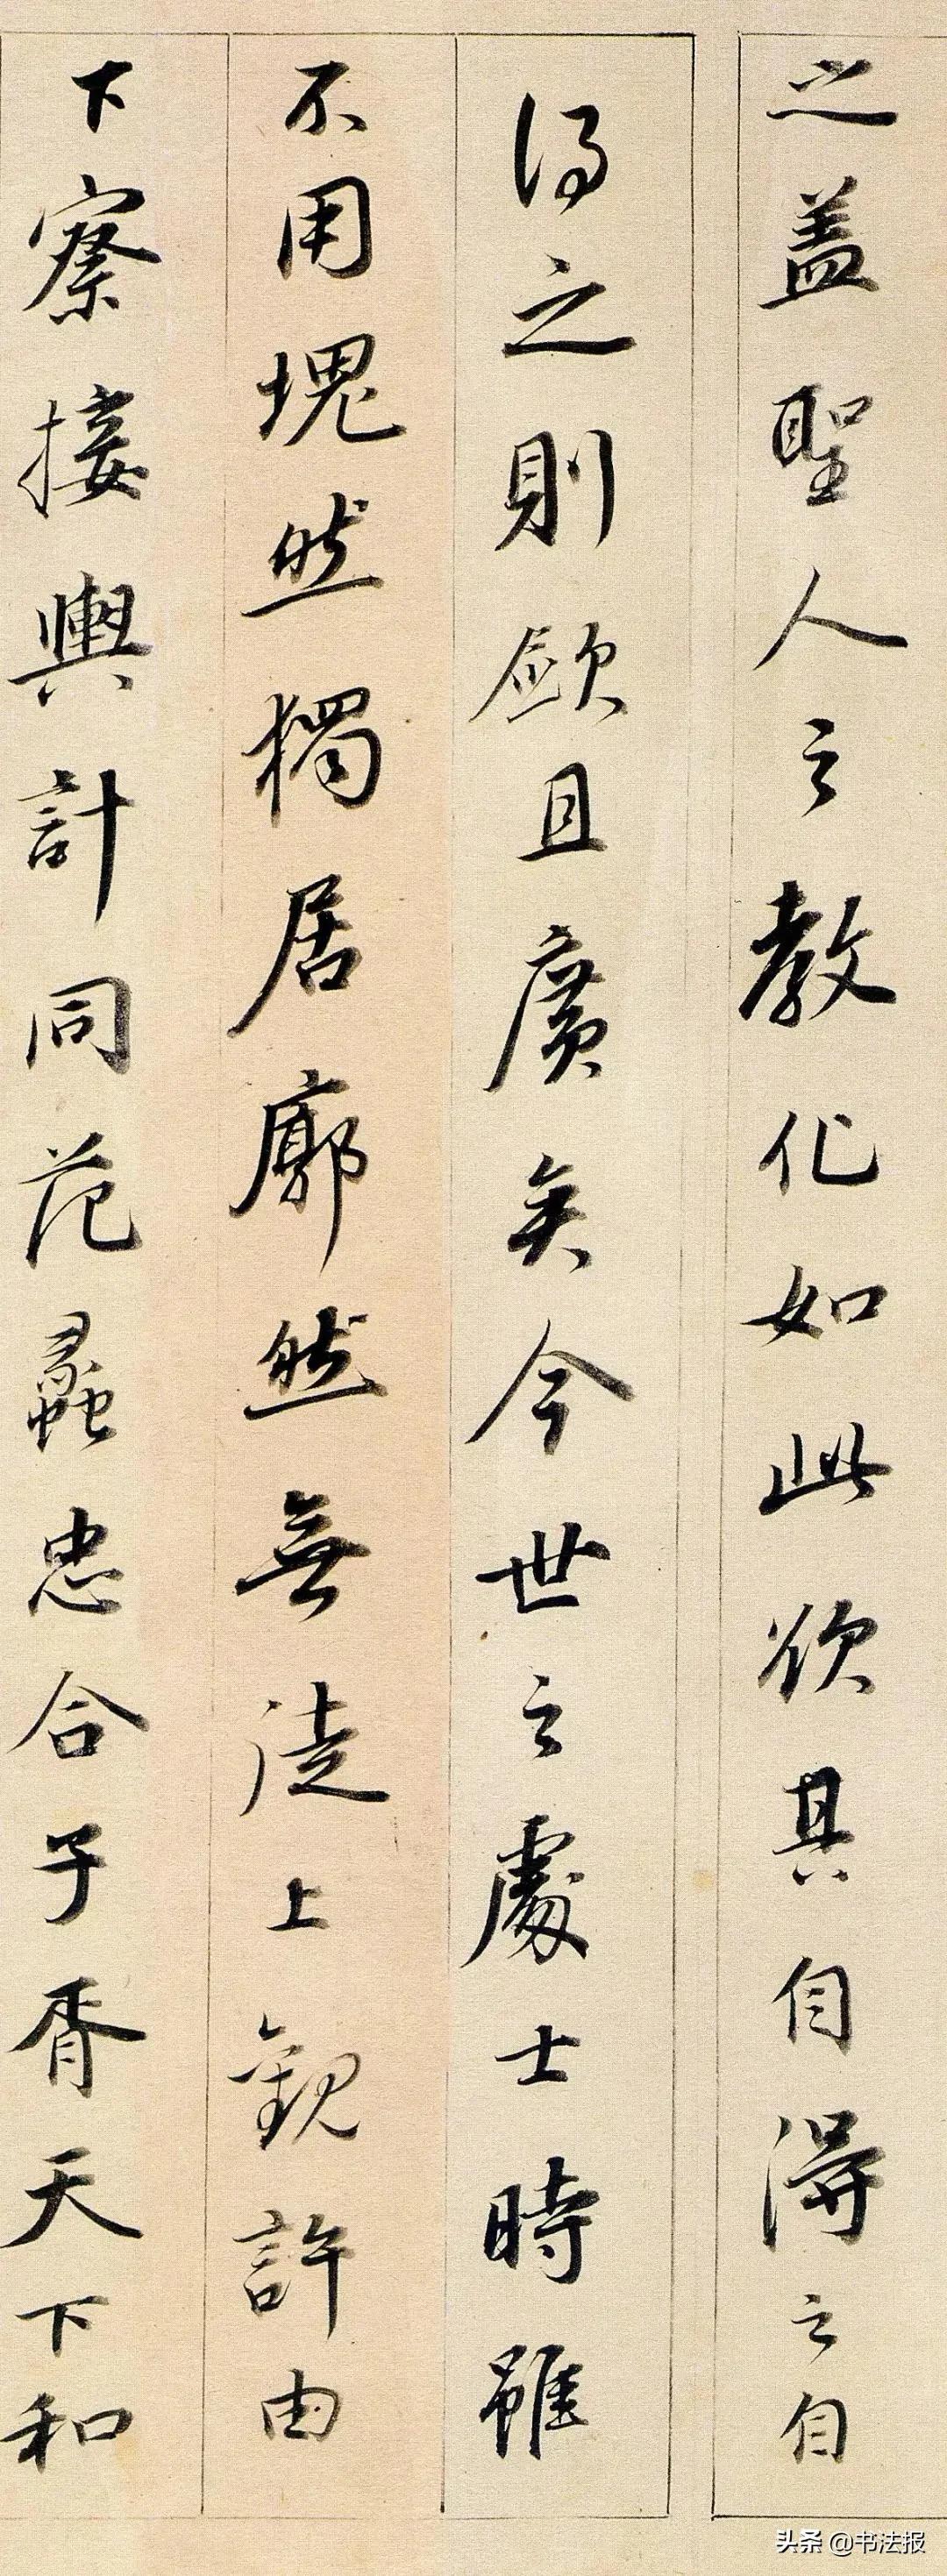 之盖聖人之教化如此欲其自得之自
得之則敏且廣矣今世之處士時雖
不用塊然獨居廓然無徒上觀許由
下察接輿計同范蠡忠合子胥天下和
头条 @书法报